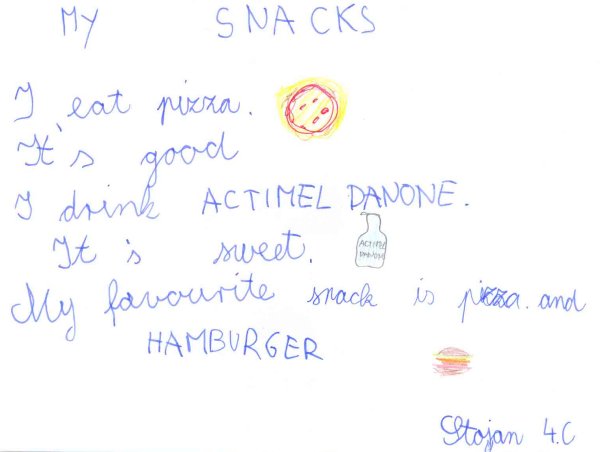 MY SNACKS
I eat pizza.
It's good
I drink ACTIMEL DANONE.
It is sweet.
ACTIMEL
DANONE
My favourite snack is pizza. and
HAMBURGER
Stojan 4.C